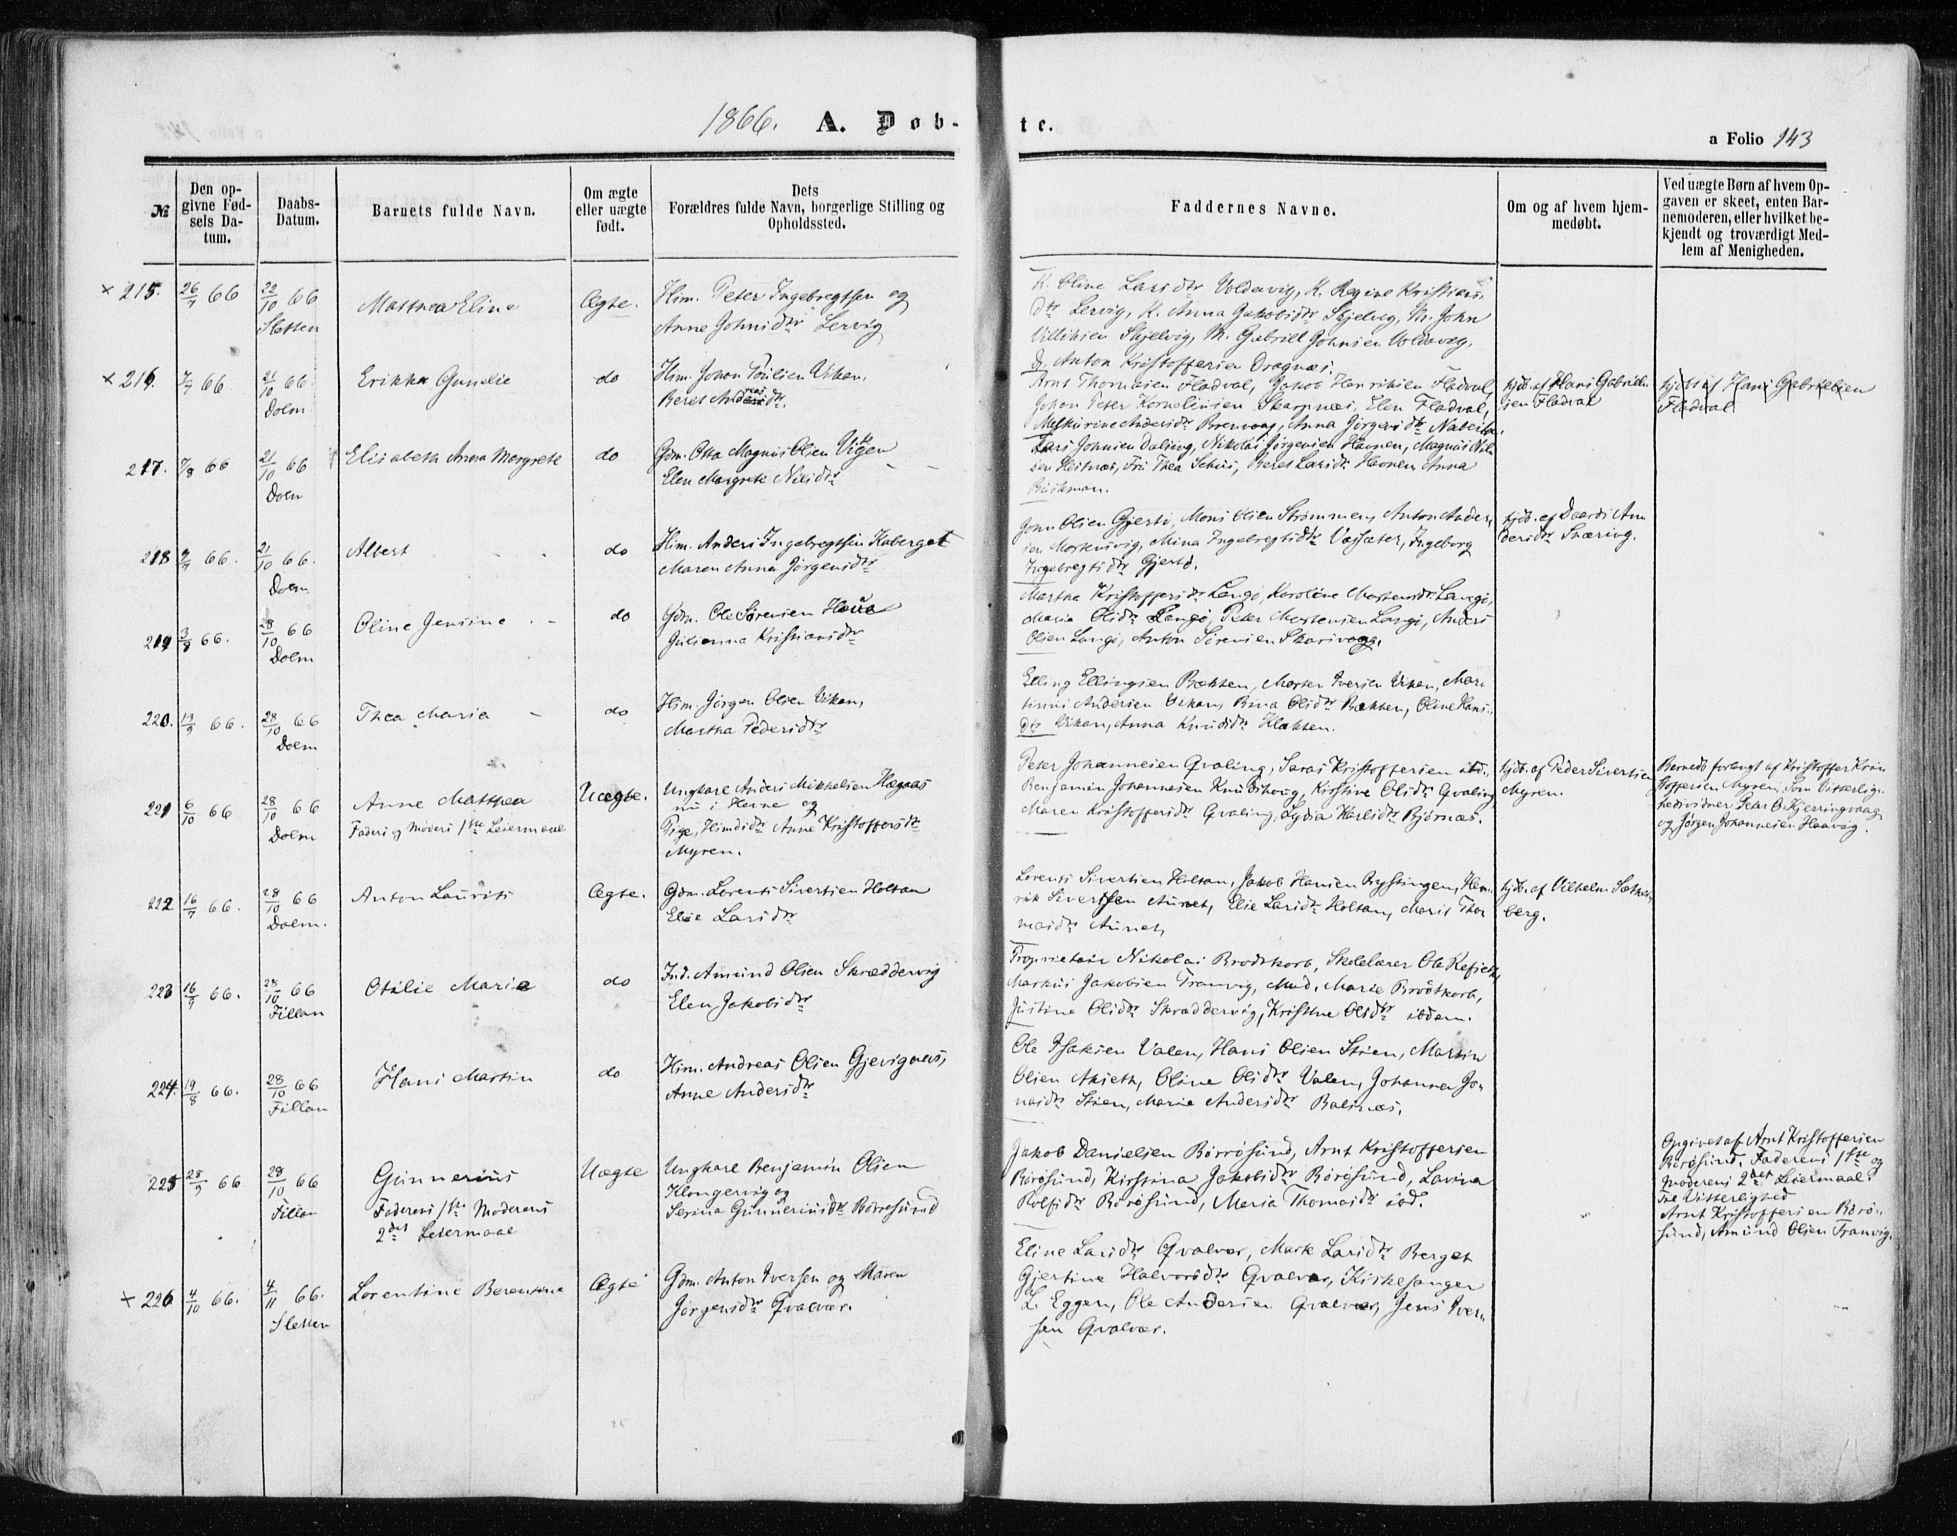 1866. A. Døb-
te.
a Folio 143
№
Den op-
givne Fød-
sels Da-
tum.
Daabs-
Datum.
Barnets fulde Navn.
Om ægte
eller uægte
født.
Dets
Forældres fulde Navn, borgerlige Stilling og
Opholdssted.
Faddernes Navne.
Om og af hvem hjem-
medøbt.
Ved uægte Børn af hvem Op-
gaven er skeet, enten Bar-
nemoderen, eller hvilket be-
kjendt og troværdigt Med-
lem af Menigheden.
× 215. 26/7 66 22/10 66 Mathea Eline Ægte. Hum. Peter Ingebregtsen og
Sletten Anne Johnsdtr Lervig
K. Oline Larsdtr Voldsvig, K. Regine Kristians
dtr Lervig, K. Anna Jakobsdtr Skjelvig, M. John
Villiksen Skjelvig, M. Gabriel Johnsen Voldsvig,
Anton Kristoffersen Dragnæs.
× 216. 7/7 66 21/10 66 Erikka Gunelie do Hum. Johan Poulsen Uskan,
Dolm Beret Andersdtr
Arnt Thomasen Fladval, Jakob Henriksen Fladval,
Johan Peter Korneliusen Skarpnæs, Elen Fladval,
Anna Jørgensdtr
hjdb. af Hans Gabriel
sen Fladval
hjdbt af Hans Gabrielsen
Fladval
217. 7/8 66 21/10 66 Elisabeth Anna Margrete do Gdm. Otto Magnus Olsen Vigen
Dolm Elen Margrete Nilsdtr
Lars Johnsen Dalsvog, Nikolai Jørgensen Havnen, Magnus Nil
sen Hestnæs, Fri Thea Schus, Beret Larsdtr Havnen Anna
218 9/7 66. 21/10 66. Albert do Hum. Anders Ingebregtsen Kaberget
Dolm Maren Anna Jørgensdtr
John Olsen Gjertø, Mons Olsen Strømmen, Anton Anders
sen Mortensvig, Mina Ingebregtsdtr Vægsæter, Ingeborg
Ingebregtsdtr Gjertø.
hjdb. af Daardi An
dersdtr Skæring.
219 3/8 66. 28/10 66 Oline Jensine do Gdm. Ole Sørensen
Dolm Julianna Kristiansdtr
Martha Kristoffersdtr Langø, Karoline Mortensdtr Langø,
Maria Olsdtr Langø, Peter Mortensen Langø, Anders
Olsen Langø, Anton Sørensen Skarsvaag.
220. 13/9 66. 28/10 66 Thea Maria do Hum. Jørgen Olsen Uskan,
Dolm Martha Pedersdtr
Elling Ellingsen Bækken, Morten Iversen Uskan, Mar
tinus Andersen Uskan, Olsdtr Bækken, Oline Hans
dtr Uskan, Anna Knudsdtr Klakken.
221 6/10 66 28/10 66 Anne Mathea Uægte. Ungkarl Anders Mikkelsen Hægaas
Dolm Faders og Moders 1ste Leiermaal nu i Hevne og
Pige, Anne Kristoffersdtr
Myren.
Peter Johannesen Qvaling, Saras Kristoffersen ibd.
Benjamin Johannesen Knudshoug, Kirstine Olsdtr Qvaling
Maren Kristoffersdtr Qvaling, Lydia Karlsdtr Bjørnæs.
hjdb. af Peder Sivertsen
Myren.
Barnedb forlangt af Kristoffer Kris
toffersen Myren, som Vitterlig-
hedsvidner Peter O Kjerringvaag
og Jørgen Johannesen Haavig.
222 16/7 66. 28/10 66 Anton Laurits Ægte. Gdm. Lorents Sivertsen Holtan
Dolm. Elie Larsdtr
Lorents Sivertsen Holtan, Jakob Hansen Ryssingen, Hen
rik Sivertsen Aunet, Elie Larsdtr Holtan, Marit Tho
masdtr Aunet,
hjdb. af Vilhelm Sæther
berg.
223 16/9 66. 28/10 66 Otilie Marie do Ind. Amund Olsen Skræddervig
Fillan Elen Jakobsdtr
Proprietair Nikolai Brodtkorb, Skolelærer Ole
Markus Jakobsen Tranvig, Mad. Marie Brodtkorb,
Justine Olsdtr Skræddervig, Kristine Olsdtr ibdem.
224. 19/8 66. 28/10 66 Hans Martin do Hum. Andreas Olsen Gjevignæs,
Fillan Anne Andersdtr
Ole Isaksen Valen, Hans Olsen Stien, Martin
Olsen Akseth, Oline Olsdtr Valen, Johanna Jo-
nasdtr Stien, Marie Andersdtr Balsnæs.
225 28/9 66 28/10 66 Gunnerius Uægte Ungkarl Benjamin Olsen
Fillan Faderens 1ste Moderens Klongervig og
2det Leiermaal Serina Gunneriusdtr Børrøsund
Jakob Danielsen Børrøsund, Arnt Kristoffersen
Børøsund, Kirstina Jakobsdtr Børøsund, Lavina
Rolfsdtr Børøsund, Maria Thomasdtr ibd.
Opgivet af Arnt Kristoffersen
Børøsund. Faderens 1ste og
Moderens 2det Leiermaal.
Til Vitterlighed
Arnt Kristoffersen Børø-
sund, Amund Olsen Tranvig.
× 226 4/10 66. 4/11 66. Lorentine Berentine Ægte Gdm. Anton Iversen og Maren
Sletten Jørgensdtr Qvalvær.
Eline Larsdtr Qvalvær, Marte Larsdtr Berget
Gjertine Halvorsdtr Qvalvær, Kirkesanger
L. Eggen, Ole Andersen Qvalvær, Jens Iver-
sen Qvalvær.